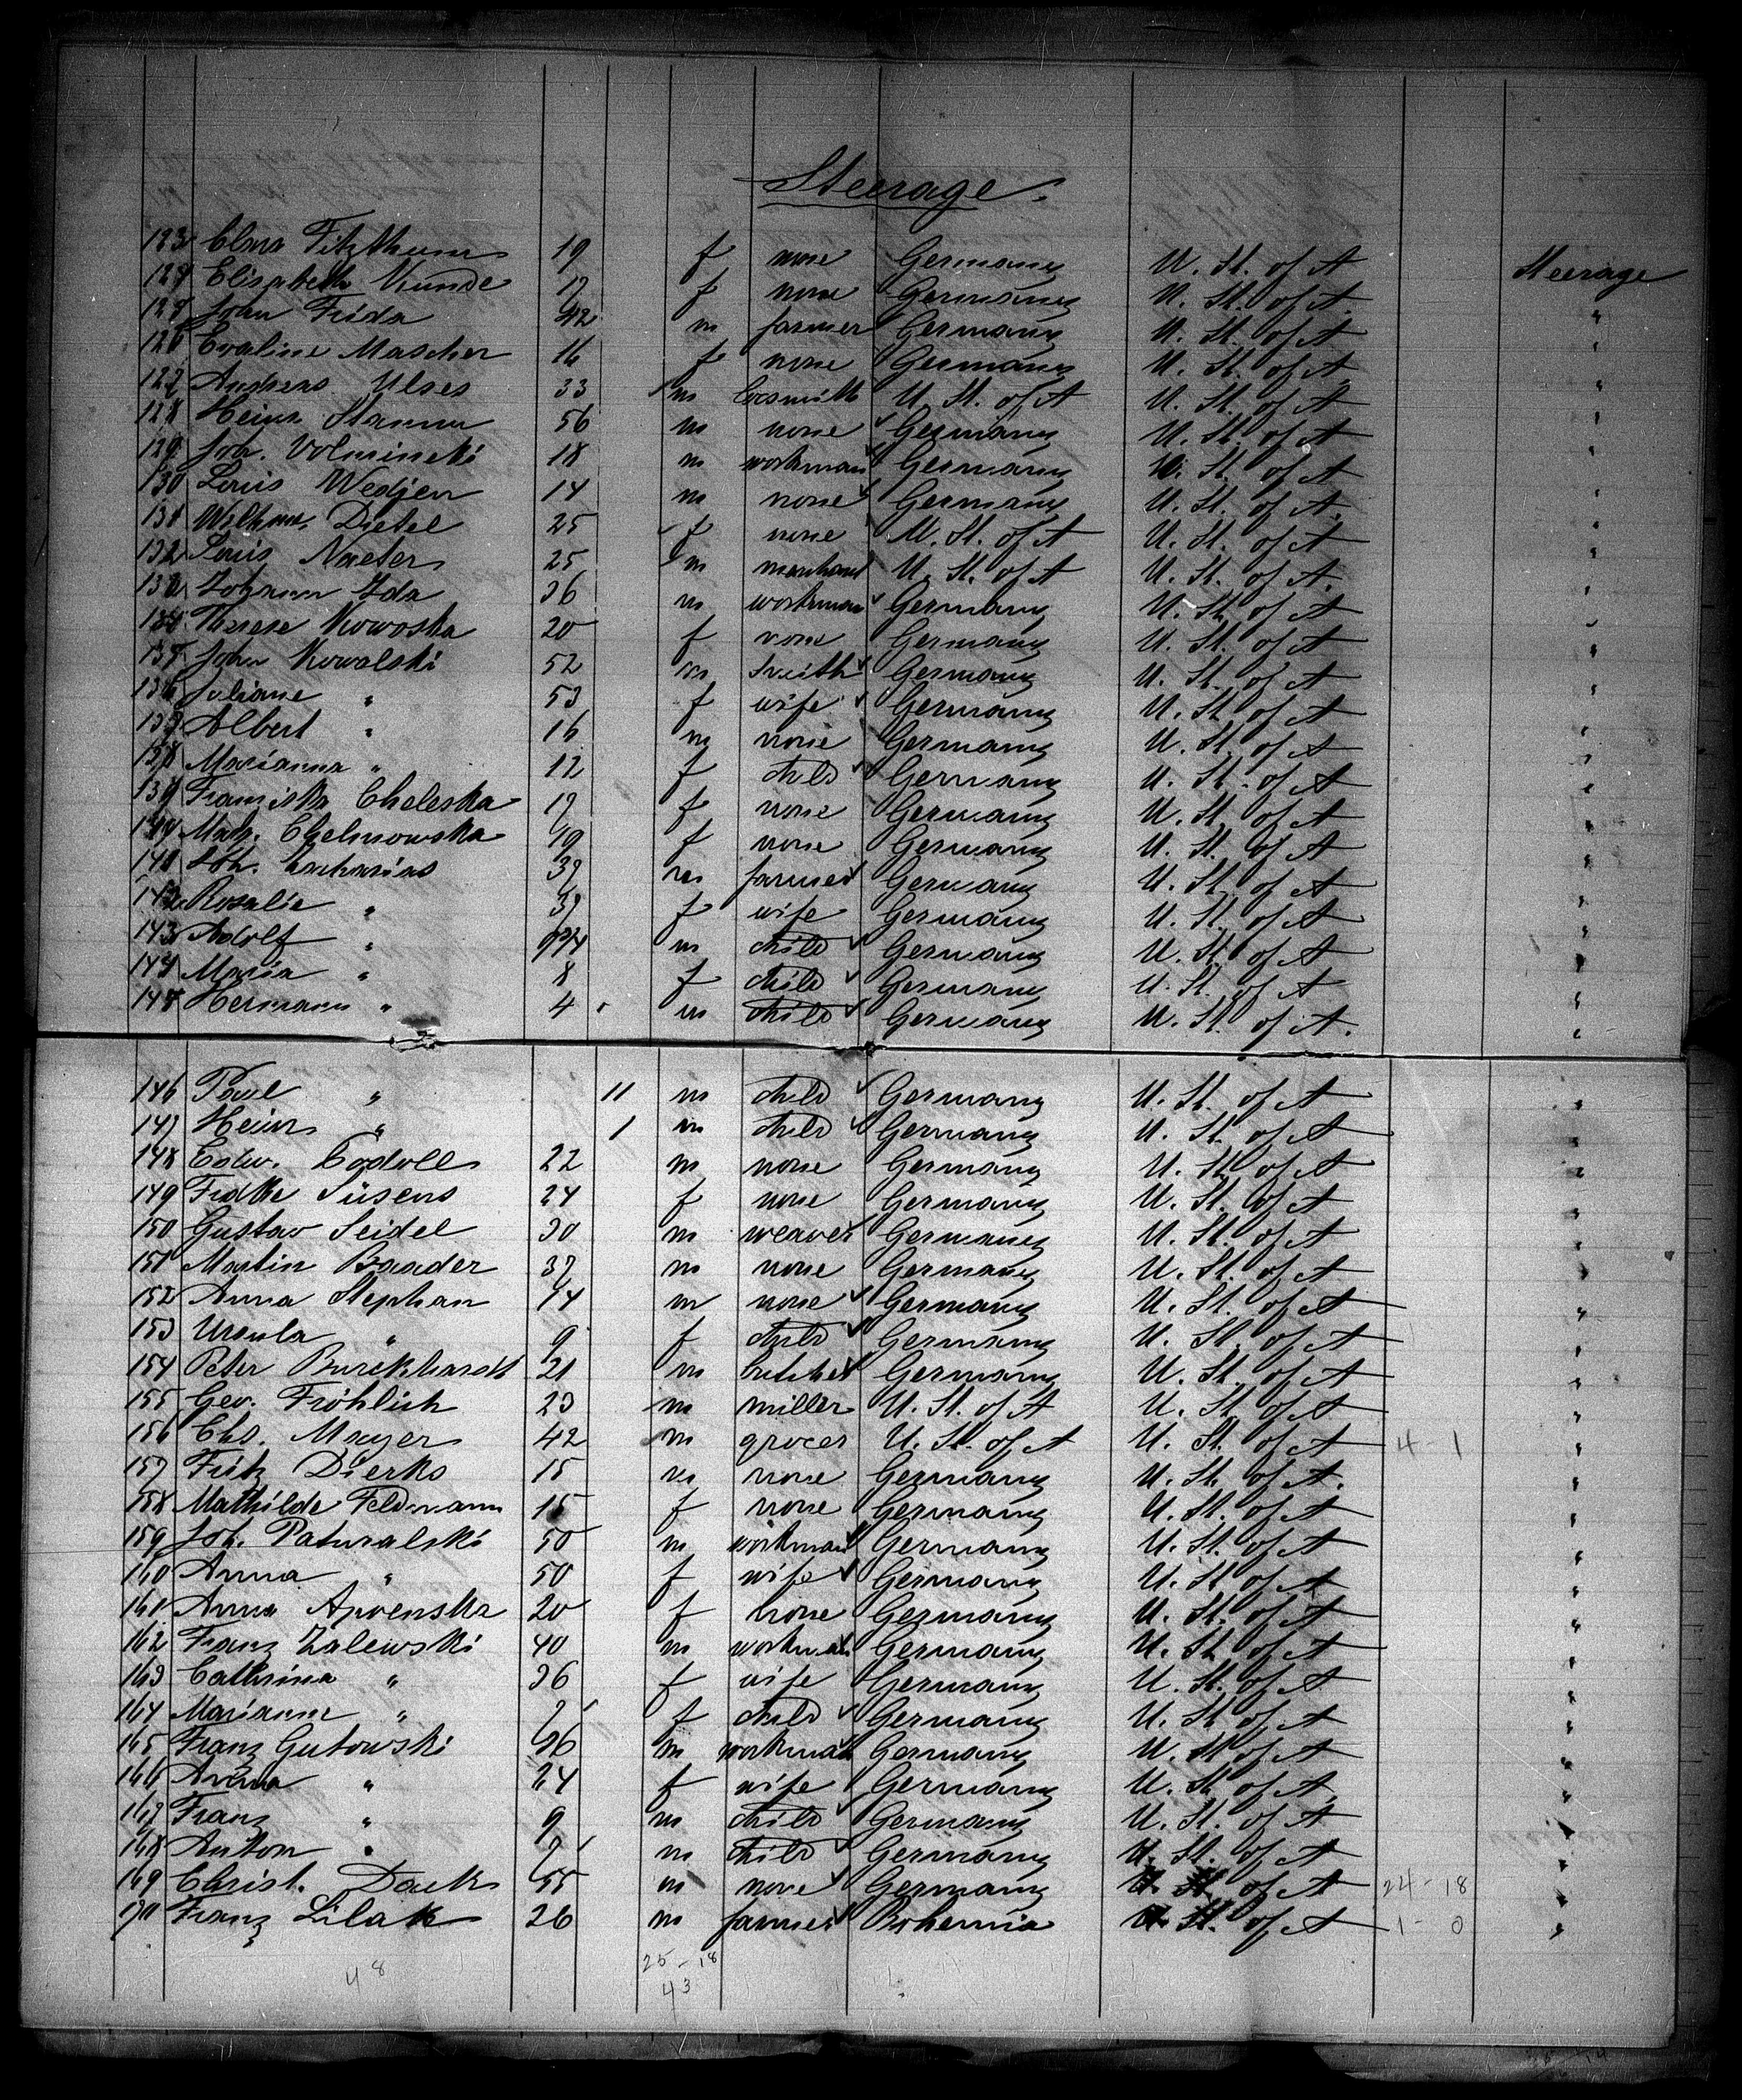 Steerage.
123 Elma Fitzthum 19 f none Germany U. St. of A Steerage
124 Elisabeth Kunde 17 f none Germany U. St. of A "
125 John Frida 42 m farmer Germany U. St. of A "
126 Evaline Mascher 16 f none Germany U. St. of A "
127 Andreas Ulses 33 m locsmith U. St. of A U. St. of A "
128 Heinr. Stamm 56 m none Germany U. St. of A "
129 Joh. Volminski 18 m workman Germany U. St. of A "
130 Louis Wedjen 14 m none Germany U. St. of A "
131 Wilhme. Dietel 25 f none U. St. of A U. St. of A "
132 Louis Naeter 25 m U. St. of A U. St. of A "
133 Johann Ida 36 m workman Germany U. St. of A "
134 Therese Kowoska 20 f none Germany U. St. of A "
135 John Kowalski 52 m Smith Germany U. St. of A "
136 Juliane " 53 f wife Germany U. St. of A "
137 Albert " 16 m none Germany U. St. of A "
138 Marianna " 12 f child Germany U. St. of A "
139 Franziska Cheleska 17 f none Germany U. St. of A "
140 Chelmowska 19 f none Germany U. St. of A "
141 Joh. Zacharias 37 m farmer Germany U. St. of A "
142 Rosalie " 37 f wife Germany U. St. of A "
143 Adolf " m child Germany U. St. of A "
144 Maria " 8 f child Germany U. St. of A "
145 Hermann " 4 m child Germany U. St. of A. "
146 Paul " 11 m child Germany U. St. of A "
147 Heinr " 1 m child Germany U. St. of A "
148 Edw. Codoll 22 m none Germany U. St. of A "
149 Frdke Süsens 24 f none Germany U. St. of A "
150 Gustav Seidel 30 m weaver Germany U. St. of A "
151 Martin Baader 37 m none Germany U. St. of A "
152 Anna Stephan 14 m none Germany U. St. of A "
153 Ursula " 9 f child Germany U. St. of A "
154 Peter Burckhardt 21 m butcher Germany U. St. of A "
155 Geo. Fröhlich 23 m miller U. St. of A U. St. of A "
156 Chs. Meyer 42 m grocer U. St. of A U. St. of A 4 - 1 "
157 Fritz Dierks 15 m none Germany U. St. of A. "
158 Mathilde Feldmann 15 f none Germany U. St. of A "
159 Joh. Paturalski 50 m workman Germany U. St. of A "
160 Anna " 50 f wife Germany U. St. of A "
161 Anna Aproenska 20 f none Germany U. St. of A "
162 Franz Zalewski 40 m workman Germany U. St. of A "
163 Cathrina " 36 f wife Germany U. St. of A "
164 Marianne " 7 f child Germany U. St. of A "
165 Franz Gutowski 36 m workman Germany U. St. of A "
166 Anna " 24 f wife Germany U. St. of A "
167 Franz " 9 m child Germany U. St. of A "
168 Anton " 7 m child Germany U. St. of A "
169 Christ. Daek 55 m none Germany U. St. of A 24 - 18 "
170 Franz Lilak 26 m farmer Bohemia U. St. of A 1 - 0 "
25 - 18
48 43